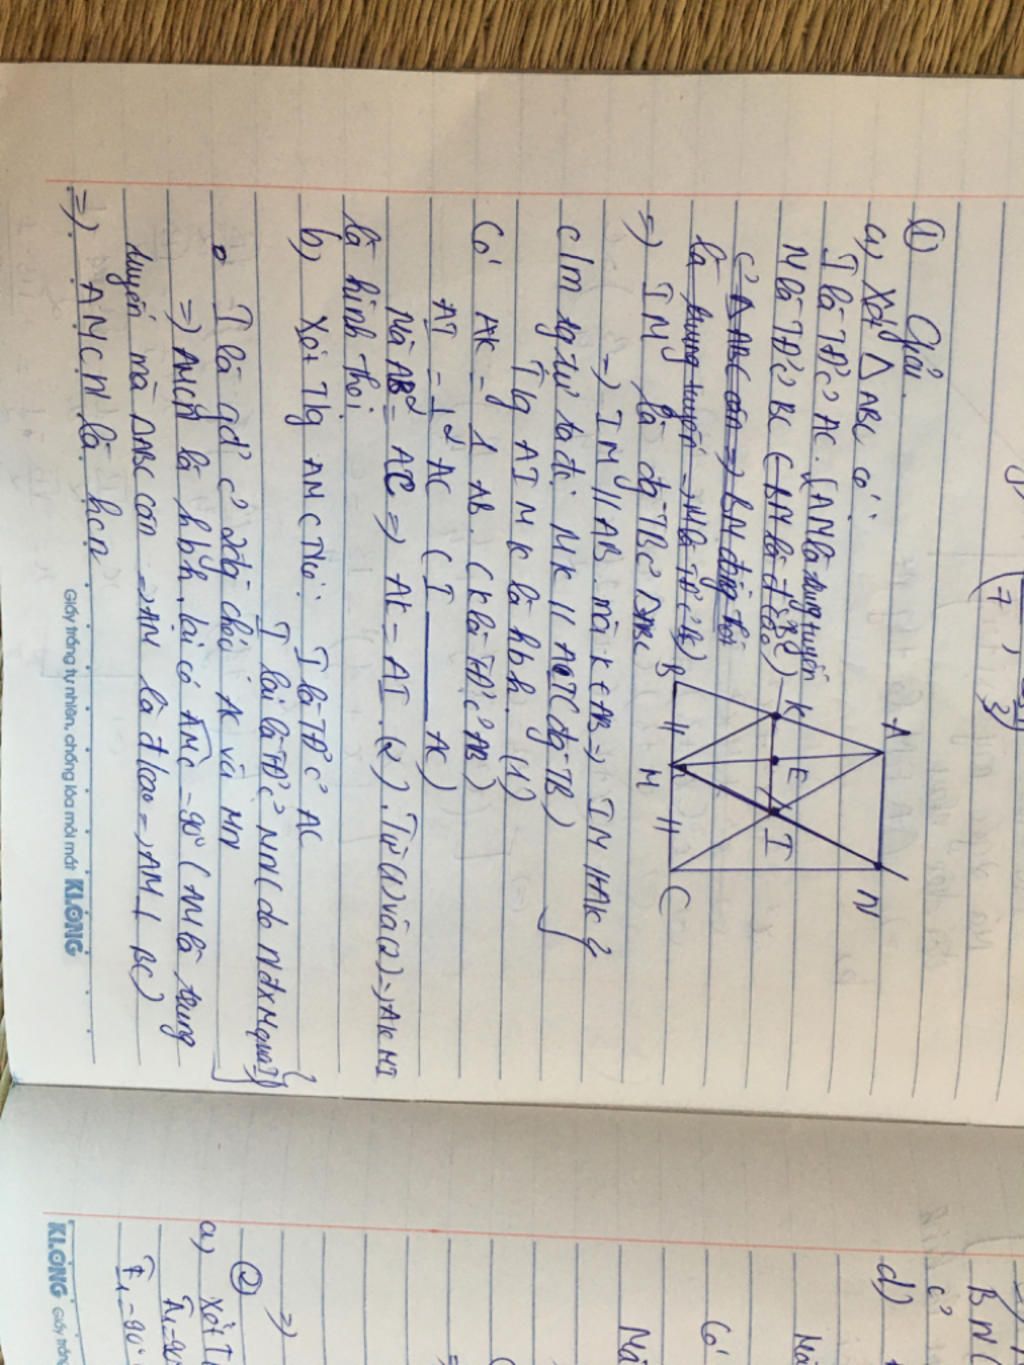 ① Giải.
a, Xét △ ABC có:
I là TĐ c² AC. (AM là trung tuyến
M là TĐ c² BC (
c² △ ABC cân => BM đồng thời
là trung tuyến => M là TĐ c² BC)
=> IM là đg TB c² △ABC
=> IM // AB. mà K ∈ AB => IM // AK }
c/m tg tự ta đc: MK // AI (đg TB)
Tg AIMK là hbh. (1)
Có AK = 1/2 AB. (K là TĐ c² AB)
AI = 1/2 AC (I ——— AC)
Mà AB = AC => AK = AI. (2). Từ (1) và (2) => AKMI
là hình thoi
b) Xét Tg AMCN có: I là TĐ c² AC
I lại là TĐ c² MN (do N đx M qua I) }
I là gđ c² 2 đg chéo AC và MN
=> AMCN là hbh, lại có AMC = 90° (M là trung
tuyến mà △ABC cân => AM là đ/cao => AM ⊥ BC)
=> AMCN là hcn
A N K E I B M C
Giấy trắng tự nhiên, chống lóa mỏi mắt KLONG
d)
Có
Mà
=>
②
a) Xét T
= 90°
KLONG Giấy trắng